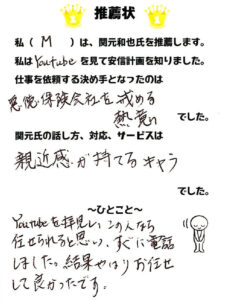 推薦状
私(M)は、関元和也氏を推薦します。
私はYoutubeを見て安信計画を知りました。
仕事を依頼する決め手となったのは
悪徳保険会社を戒める
熱意
でした。
関元氏の話し方、対応、サービスは
親近感が持てるキャラ
でした。
〜ひとこと〜
Youtubeを拝見し、この人なら
任せられると思い、すぐに電話
しました。結果やはりお任せ
して良かったです。